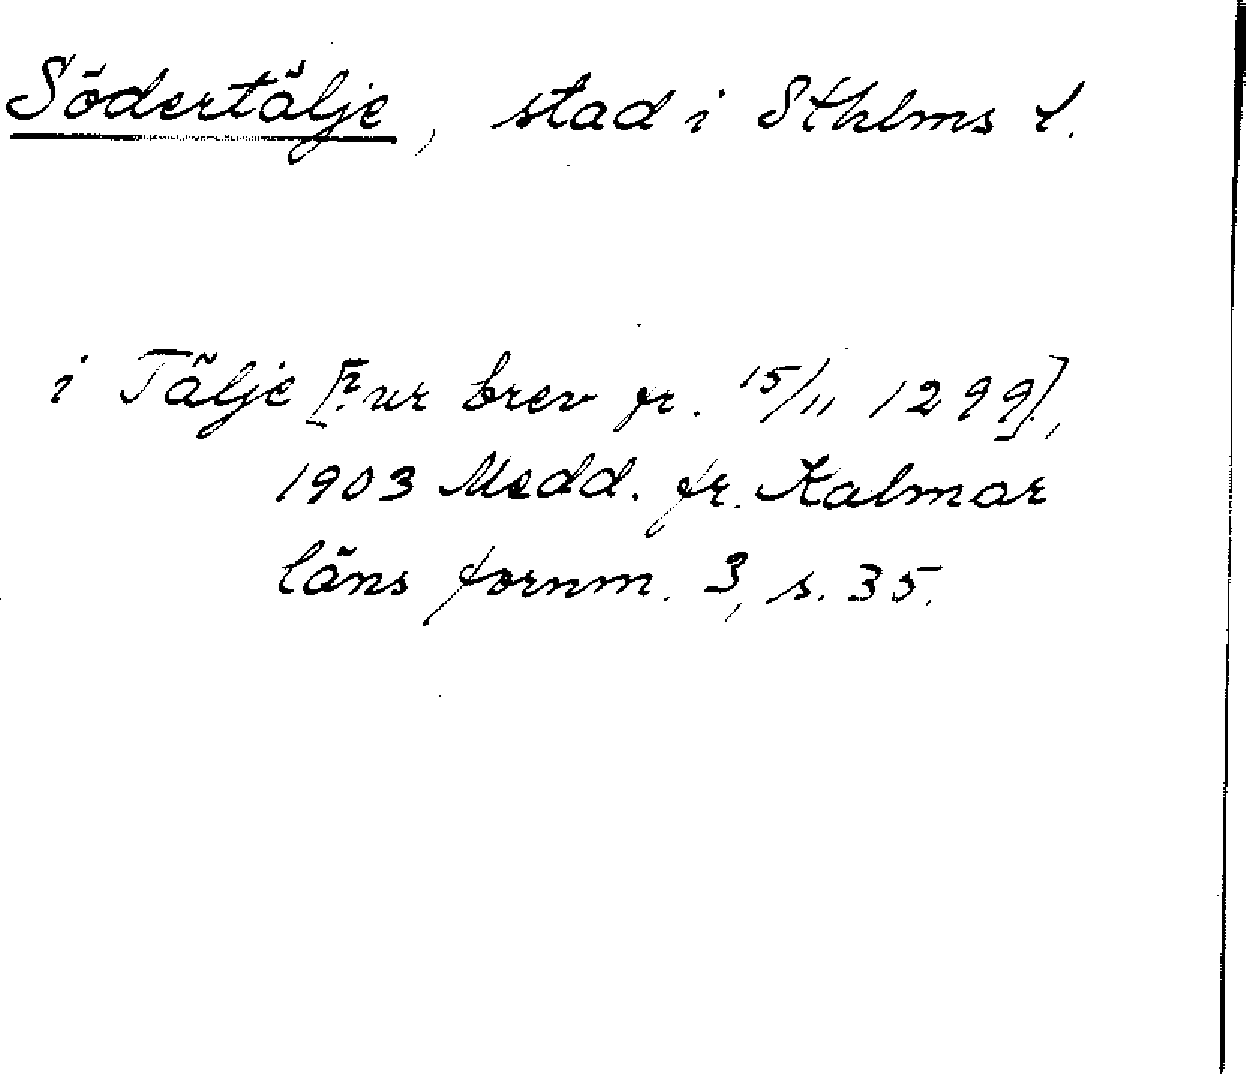 Södertälje, stad i Sthlms l.
i Tälje [? ur brev fr. 15/11 1299],
1903 Medd. fr. Kalmar
läns fornm. 3, s. 35.